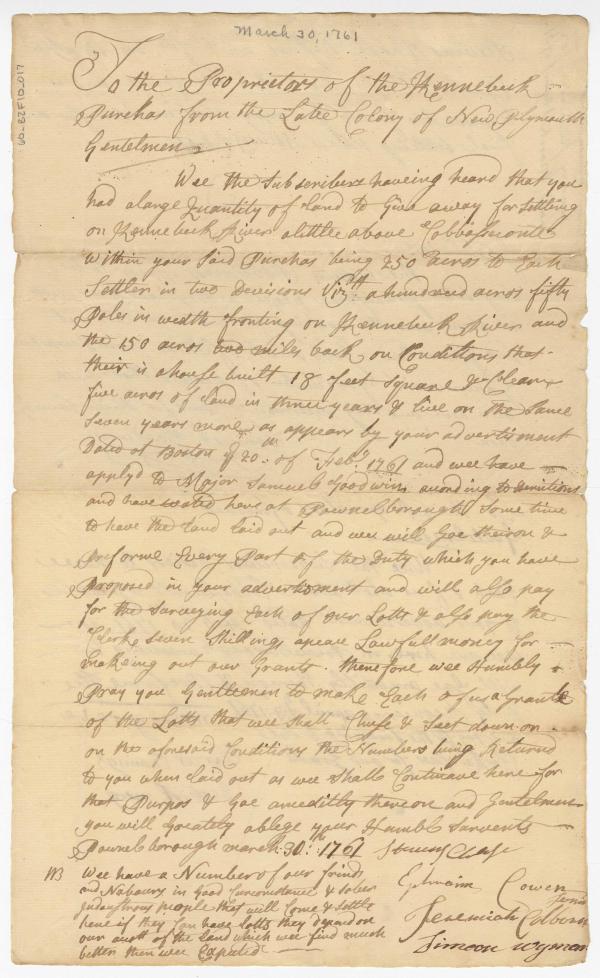 March 30, 1761
60_B2F10_017
To the Proprietors of the Kennebeck
Purchas from the Late Colony of New Plymouth
Gentelmen
Wee the Subscribers haveing heard that you
had a large Quantity of Land to Give away for Settling
on Kennebeck River a little above Cobbasconte
within your Said Purchas being 250 acros to Each
Settler in two Devisions Viz.tt a hundred acros fifty
Poles in wedth fronting on Kennebeck River and
the 150 acros two miles back on Conditions that
their is a house built 18 feet Square & Clear
five acros of Land in three years & live on the Same
Seven years more as appears by your advertisment
Dated at Boston ye 20th of Feby 1761 and wee have
applyd to Major Samuel Goodwin acording to
and have waited here at Pownelborough Some time
to have the Land laid out and wee will Goe theiron &
Preforme Every Part of the Duty which you have
Proposed in your advertisment and will also pay
for the Surveying Each of our Lotts & also pay the
Clerk Seven Shillings apeace Lawfull money for
makeing out our Grants. therefore wee Humbly
Pray you Gentlemen to make Each of us a Grante
of the Lotts that wee Shall Chuse & Seet down on
on the aforesaid Conditions the Numbers being Returnd
to you when laid out as wee Shall Continave here for
that Purpos & Goe ameditly thereon and Gentelmen
you will Greately oblege your Humble Sarvents
Pownelborough march 30th 1761
Chase
Ephraim Cowen
Jeremiah Colborn
Simeon Wyman
NB Wee have a Number of our frinds
and Nabours in Good Circumstance & Sober
Industrous people that will Come & Settle
here if they Can have Lotts they depend on
our of the Land which wee find much
better then wee Expected